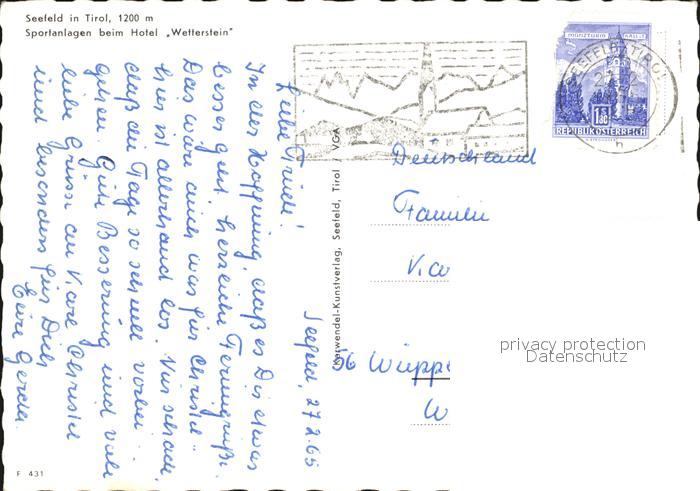 Seefeld in Tirol, 1200 m
Sportanlagen beim Hotel „Wetterstein"
Seefeld, 27.2.65
Liebe Friedl!
In der Hoffnung, daß es Dir etwas
besser geht, herzliche Feriengrüße.
Das wäre auch was für Christel
hier ist allerhand los. Nur schade,
daß die Tage so schnell vorbei
gehen. Gute Besserung und viele
liebe Grüsse an Karl Christel
und besonders für Dich
Eure Gerda.
Verwendel-Kunstverlag, Seefeld, Tirol / VGA
MÜNZTURM HALL I.T.
1.80
REPUBLIK ÖSTERREICH
SEEFELD, TIROL
h
Deutschland
Familie
56 Wupp
W
privacy protection
Datenschutz
F 431